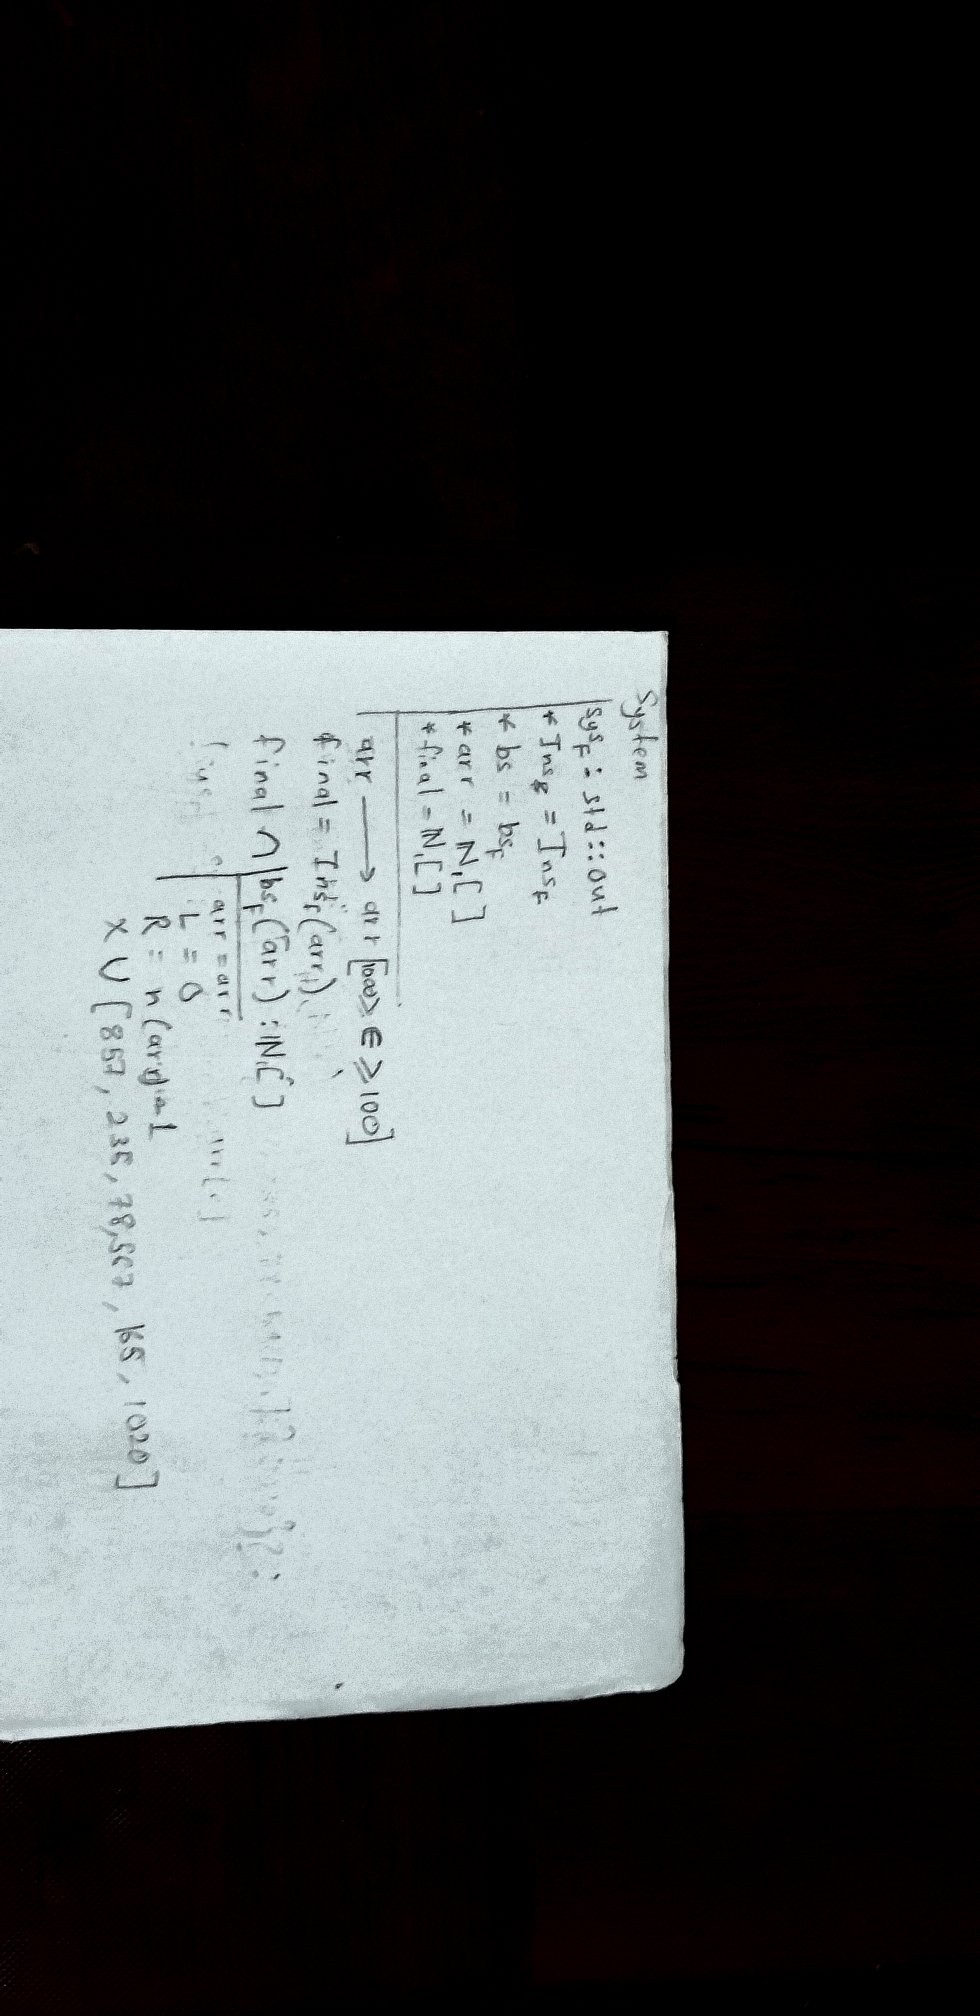 System
sys_F : std::out
* Ins_F = Ins_F
* bs = bs_F
* arr = ℕ,[ ]
* final = ℕ,[ ]
arr ⟶ arr [1000 > ∈ ≥ 100]
final = Ins_F(arr)
final ∩ bs_F(arr) : ℕ,[ ]
arr = arr
L = 0
R = n(arr) - 1
X ∪ [857, 235, 78,567, 165, 1020]